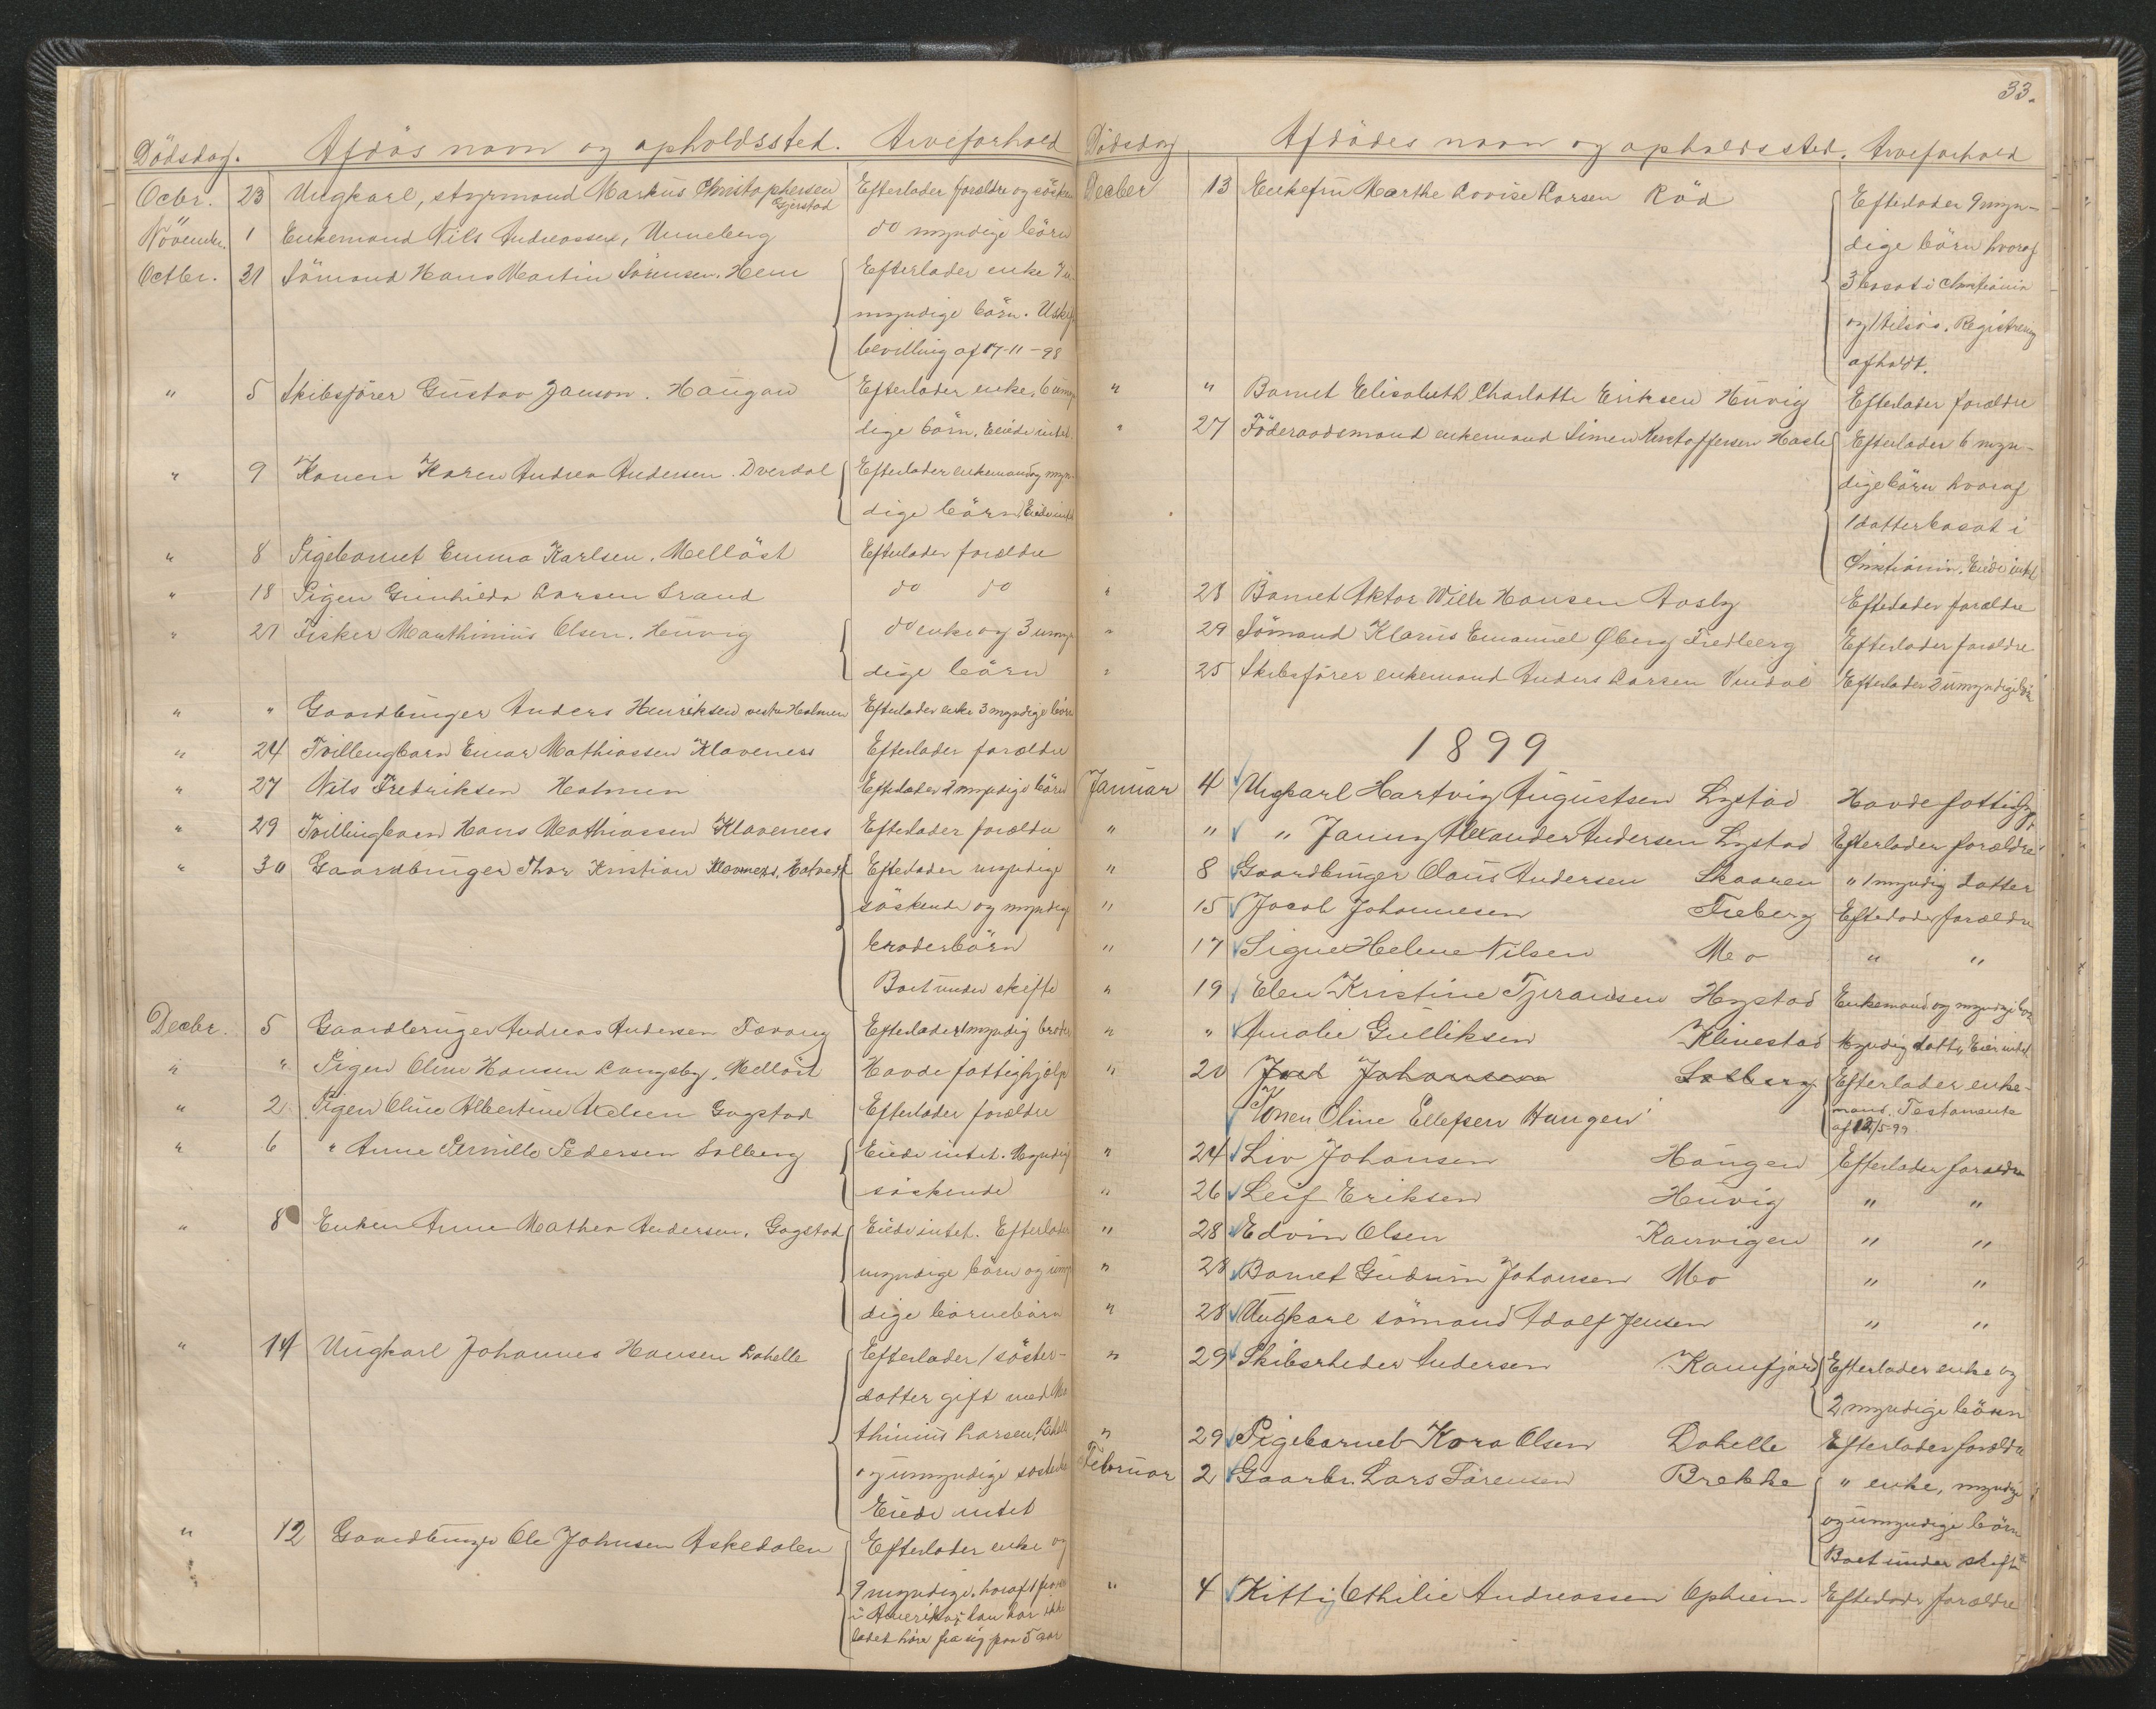 Dödsdag. Afdøs navn og opholdssted. Arveforhold
Ocbr. 23 Ungkarl, styrmand Markus Christophersen Gjerstad Efterlader forældre og
Növembr. 1 Enkemand Nils Andreassen, Unneberg do myndige börn
Octbr. 31 Sömand Hans Martin Sörensen. Hem Efterlader enke
myndige börn.
bevilling af 17-11-98
" 5 Skibsförer Gustav Janson. Haugan Efterlader enke, 6
lige börn. Eiede intet.
" 9 Konen Karen Andrea Andersen. Dverdal Efterlader enkemand og myn-
dige börn, Eiede intet
" 8 Pigebarnet Emma Karlsen. Melløst Efterlader forældre
" 18 Pigen Gunhilda Larsen Strand do do
" 21 Fisker Marthinius Olsen. Huvig do enke og 3 umyn
dige börn
" " Gaardbruger Anders Henriksen vestre Holmen Efterlader enke 3 myndige börn
" 24 Tvillingbarn Einar Mathiassen Klaveness Efterlader forældre
" 27 Nils Fredriksen Holmen Efterlader myndige börn
" 29 Tvillingbarn Hans Mathiassen Klaveness Efterlader forældre
" 30 Gaardbruger Thor Kristian Klavness, Efterlader myndige
söskende og myndige
broderbörn
Boet under skifte
Decbr. 5 Gaardbruger Andreas Andersen Tavang Efterlader 1 myndig broder
" " Pigen Oline Hansen Langeby, Melløst Havde fattighjelp
" 2 Pigen Oline Albertine Nielsen Gogstad Efterlader forældre
" 6 " Anne Pernille Pedersen Solberg Eiede intet. Myndig
söskende
" 8 Enken Anne Mathea Andersen. Gogstad Eiede intet. Efterlader
myndige börn og umyn
dige börnebörn
" 14 Ungkarl Johannes Hansen Dahelle Efterlader 1 söster-
datter gift med Ma
thinius Larsen,
og umyndige
Eiede intet
" 12 Gaardbruger Ole Johnsen Askedalen Efterlader enke og
9 myndige, hvoraf 1
i Amerika, han har ikke
ladet høre fra sig paa 5 aar
33.
Dödsdag Afdödes navn og opholdssted. Arveforhold
Decber 13 Enkefru Marthe Lovise Larsen Röd Efterlader 9 myn-
dige börn hvoraf
3 bosat i Christiania
og 1 tilsös. Registrering
afholdt.
" " Barnet Elisabeth Charlotte Eriksen Huvig Efterlader forældre
" 27 Föderaadsmand enkemand Simen Kristoffersen Hasle Efterlader 6 myn-
dige börn hvoraf
1 datter bosat i
Christiania. Eiede intet
" 28 Barnet Aktor Wille Hansen Aasby Efterlader forældre
" 29 Sömand Klarus Emanuel Øberg Fredberg Efterlader forældre
" 25 Skibsförer enkemand Anders Larsen Vindal Efterlader 2 umyndige bör
1899
Januar 4 Ungkarl Hartvig Augustsen Lystad Havde fattighj
" " " Janny Alexander Andersen Lystad Efterlader forældre
" 8 Gaardbruger Claus Andersen Skaaren " 1 myndig datter
" 15 Jacob Johannesen Freberg Efterlader forældre
" 17 Signe Helene Nilsen Mo " "
" 19 Elen Kristine Tjerandsen Hystad Enkemand og myndige bör
" " Amalie Gulliksen Klinestad Myndig datter, Eier intet
" 20 Johansen Solberg Efterlader enke-
Konen Oline Ellefsen Haugen mand. Testamente
af 12/5-99
" 24 Liv Johansen Haugen Efterlader forældre
" 26 Leif Eriksen Huvig " "
" 28 Edvin Olsen Ranvigen " "
" 28 Barnet Gudrun Johansen Mo " "
" 28 Ungkarl sömand Adolf Jensen " "
" 29 Skibsrheder Andersen Kamfjord Efterlader enke og
2 myndige börn
" 29 Pigebarnet Kora Olsen Dahelle Efterlader forældre
Februar 2 Gaarbr. Lars Sörensen Brekke " enke, myndige
og umyndige börn
Boet under skifte
" 4 Kitty Othilie Andreassen Opheim. Efterlader forældre